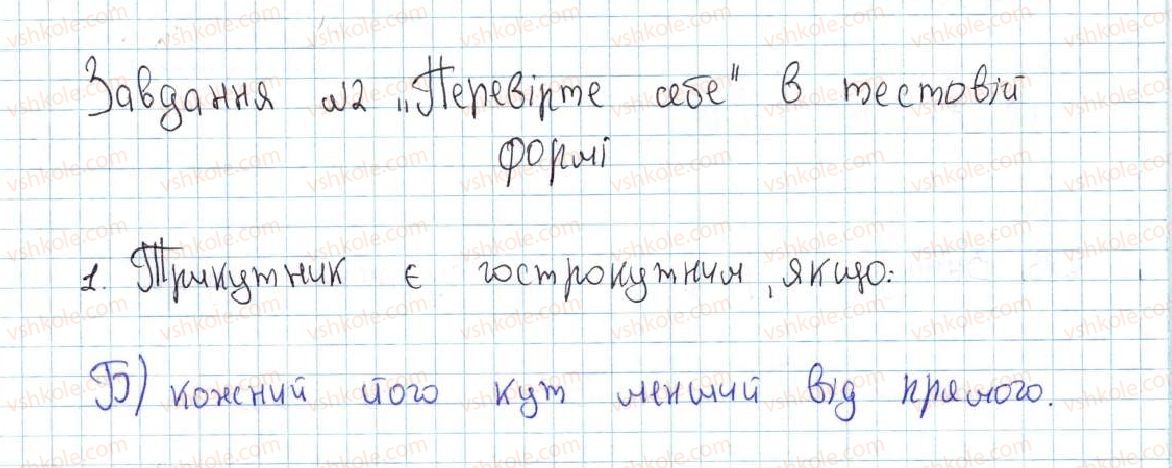 Завдання №2 „Перевірте себе" в тестовій
формі
1. Трикутник є гострокутним, якщо:
Б) кожний його кут менший від прямого.